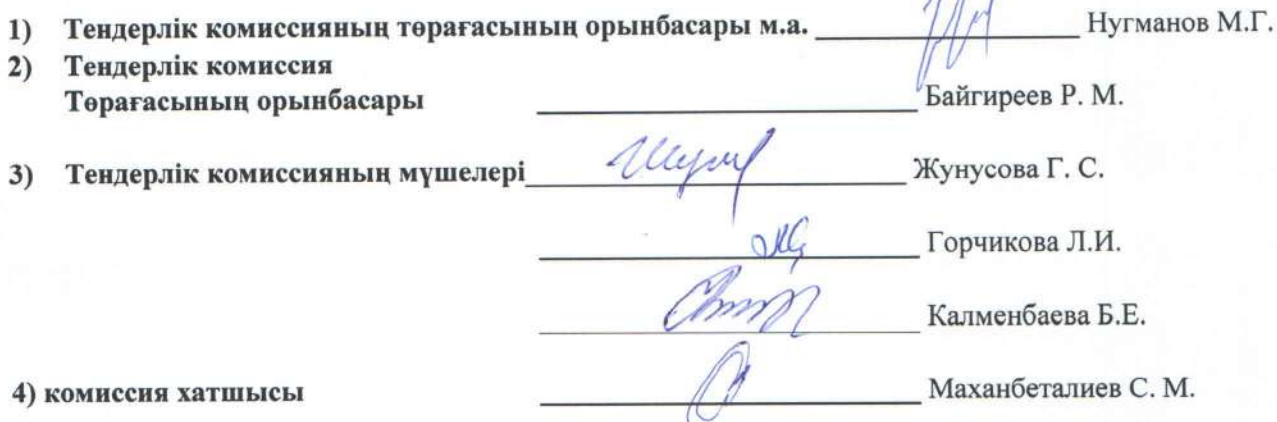 1) Тендерлік комиссияның төрағасының орынбасары м.а. Нугманов М.Г.
2) Тендерлік комиссия
Төрағасының орынбасары Байгиреев Р. М.
3) Тендерлік комиссияның мүшелері Жунусова Г. С.
Горчикова Л.И.
Калменбаева Б.Е.
4) комиссия хатшысы Маханбеталиев С. М.